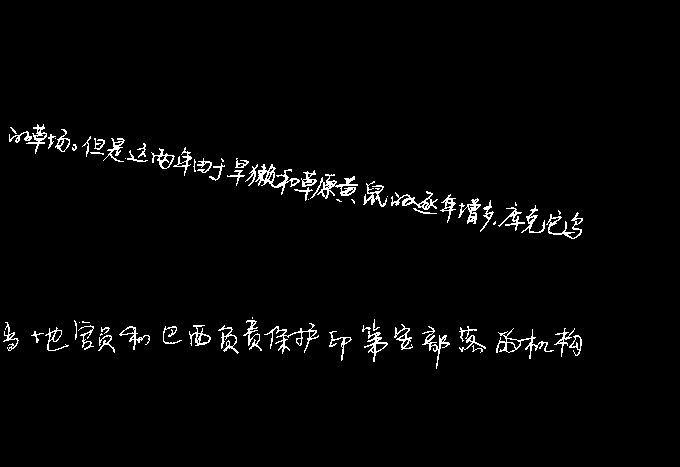 的草场。但是这两年由于旱獭和草原黄鼠的逐年增多,库克陀乌
当地官员和巴西负责保护印第安部落的机构